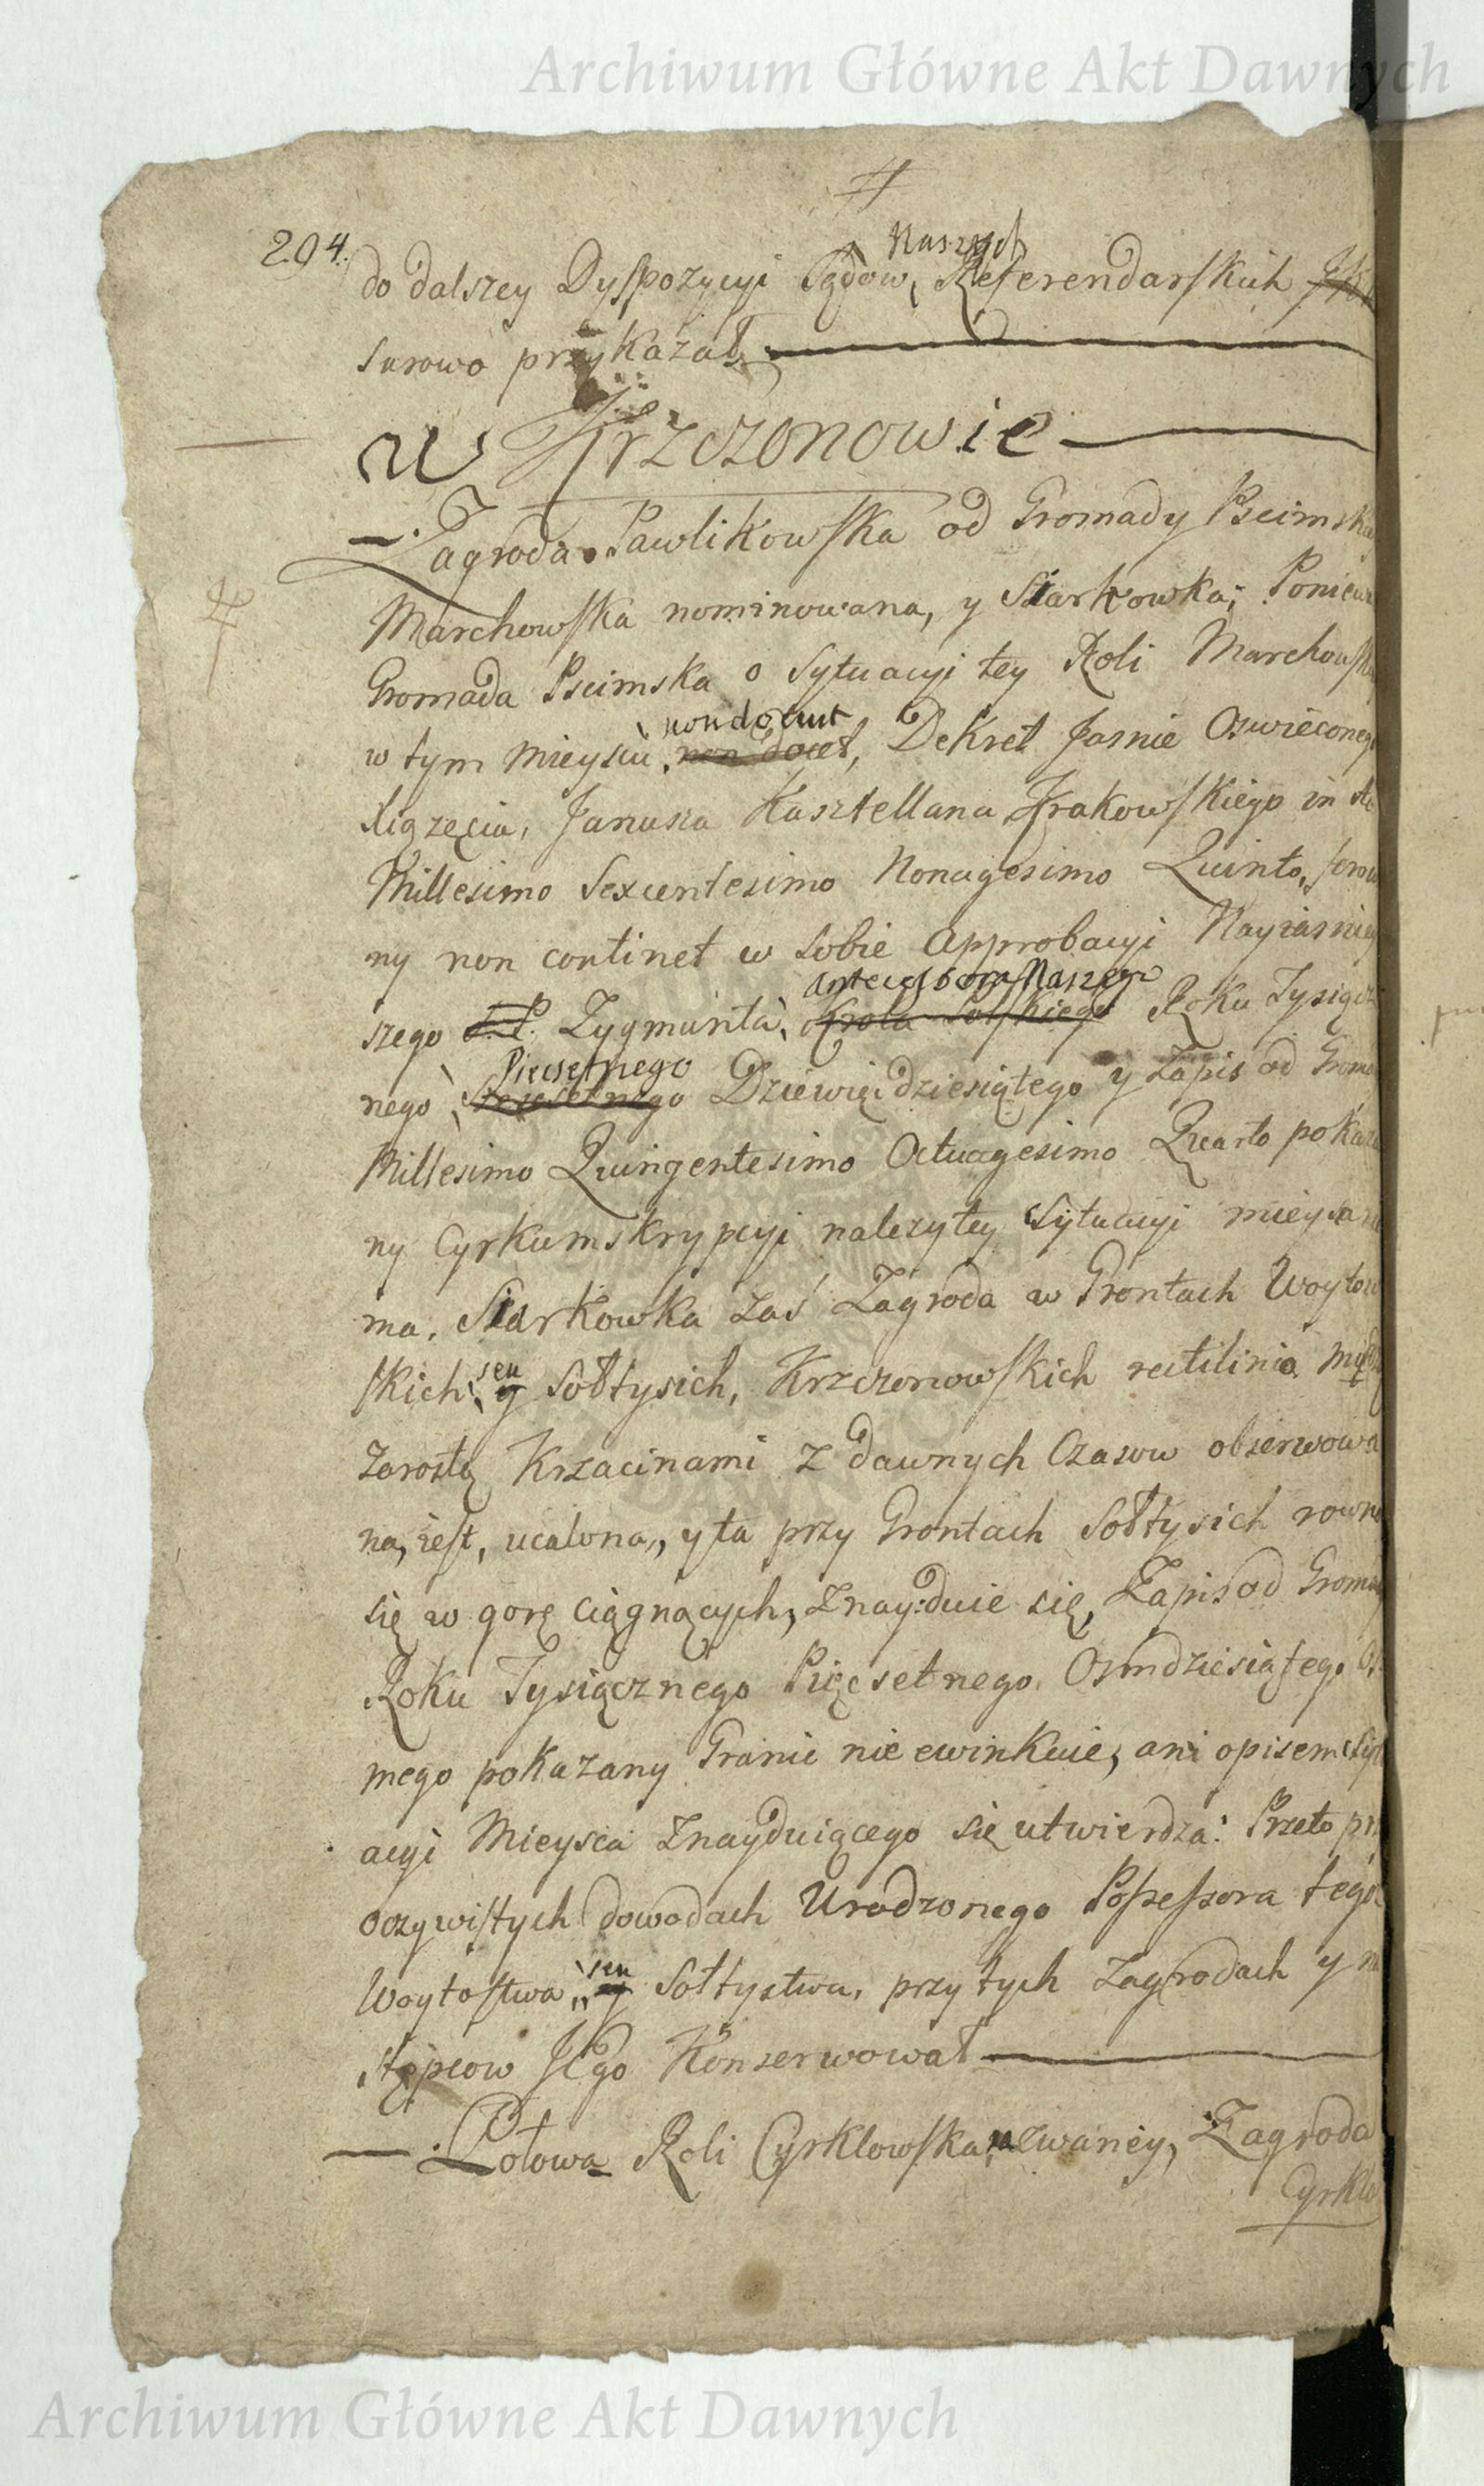 Archiwum Główne Akt Dawnych
204.
Naszych
do dalszey Dyspozycyi Sądow, Referendarskich
surowo przykazał
w Krzczonowie
Zagroda Pawlikowska od Gromady Pcimska
Marchowska nominowana, y Siarkowka; Poniewa
Gromada Pcimska o Sytuacyi tey Roli Marchowsk
non docuit
w tym mieyscu, non docet, Dekret Jasnie Oswieconego
Xiążęcia, Janusza Kasztellana Krakowskiego in
Millesimo Sexcentesimo Nonagesimo Quinto, ferow
ny non continet w sobie Approbacyi Nayiasniey
Antecessora Naszego
szego S. P. Zygmunta, Krola Polskiego Roku Tysiącz
Pięcsetnego
nego Dziewięcdziesiątego y Zapis od Groma
Millesimo Quingentesimo Octuagesimo Quarto pokaza
ny Cyrkumskrypcyi nalezytey Sytuacyi mieysca nie
ma, Siarkowka zaś Zagroda w Grontach Woytow
seu
skich, y Sołtysich, Krzczonowskich rectilinia Mied
Zarostą Krzacinami z dawnych Czasow obserwowa
na, iest, ucalona, y ta przy Grontach Sołtysich rowno
się w gorę ciągnących, znayduie się, Zapis od Groma
Roku Tysiącznego Pięcsetnego Osmdziesiątego Os
mego pokazany Granic nie ewinkuie, ani opisem Sytu
acyi Mieysca znayduiącego się utwierdza: Przeto przy
oczywistych dowodach Urodzonego Possessora tego
seu
Woytostwa, y Sołtystwa, przy tych Zagrodach y na
stępcow Jego Konserwował
Połowa Roli Cyrklowska zwaney, Zagroda
Cyrklo
Archiwum Główne Akt Dawnych